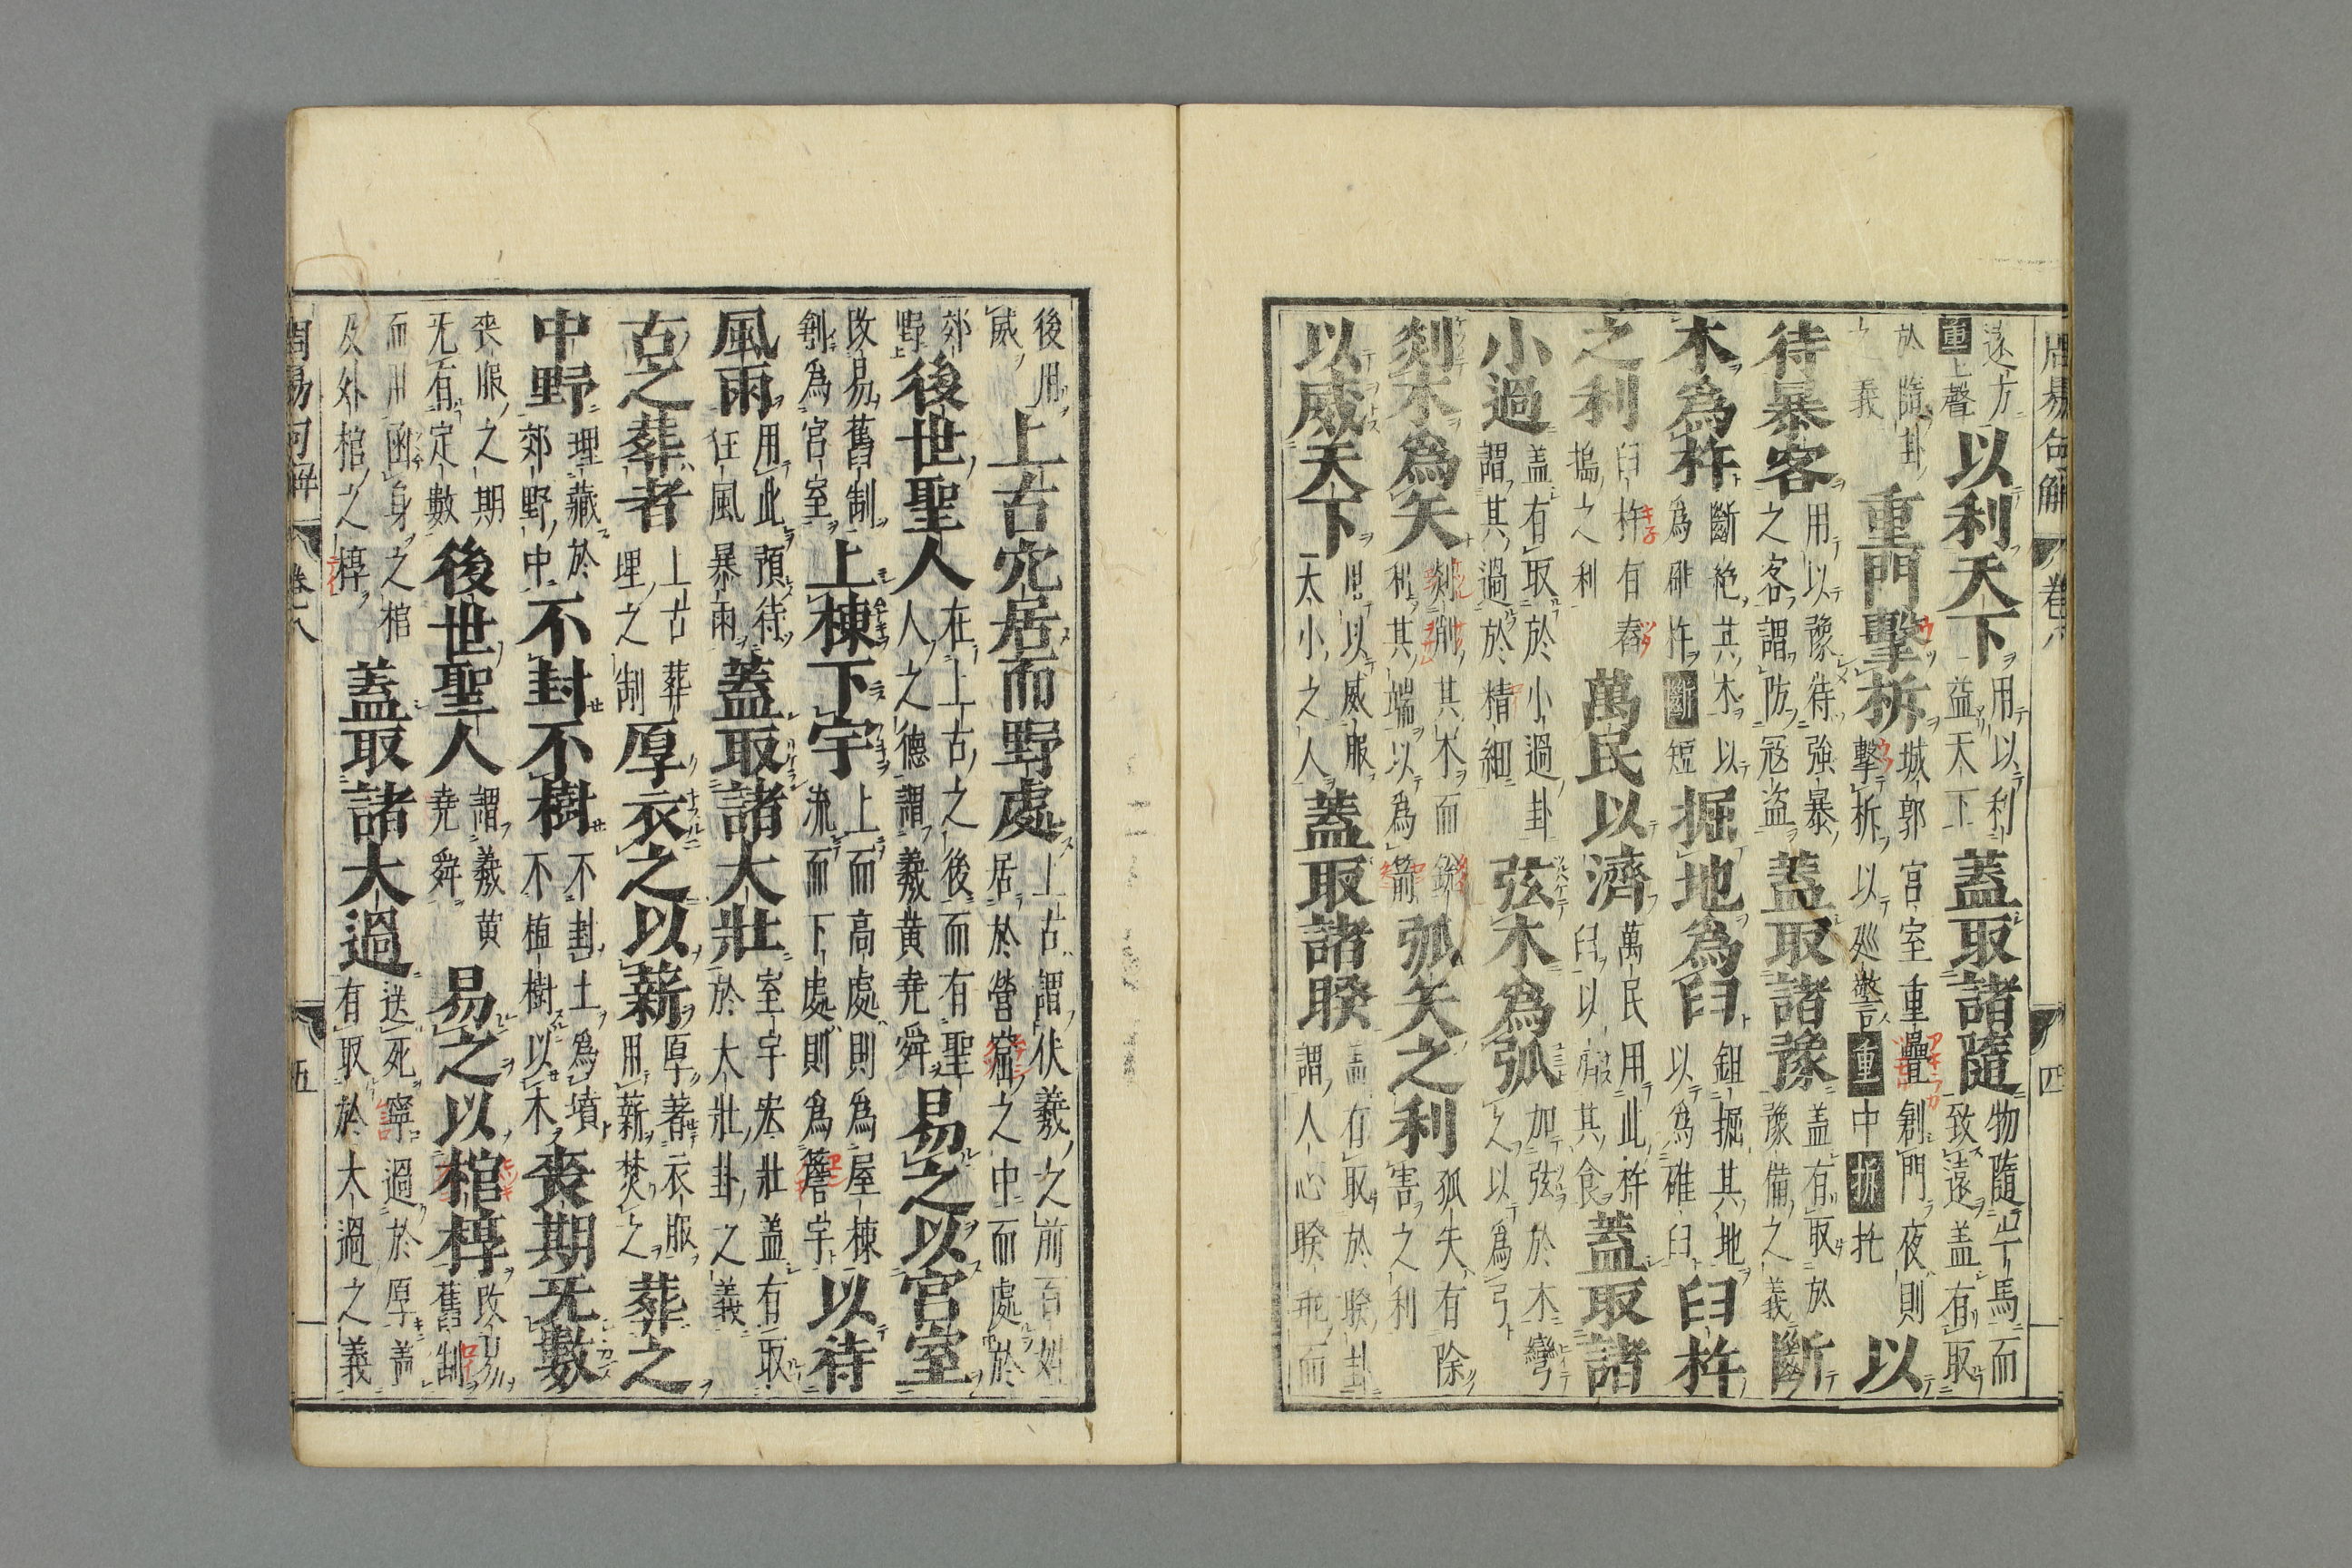 周易句解 卷八 四
遠方重上聲以利天下用以利益天下蓋取諸隨物隨牛馬而致遠盖有取
於隨卦之義重門擊柝城郭宮室重疊剏門夜則擊柝以廵警重中柝托以
待暴客用以豫待強暴之客謂防寇盗蓋取諸豫盖有取於豫備之義斷
木為杵斷絶其木以為碓杵斷短掘地為臼鉏掘其地以為碓臼臼杵
之利臼杵有舂搗之利萬民以濟萬民用此杵臼以濟其食蓋取諸
小過盖有取於小過卦謂其過於精細弦木為弧加弦於木彎之以為弓
剡木為矢剡削其木而銳利其端以為箭弧矢之利弧矢有除害之利
以威天下用以威服大小之人蓋取諸睽盖有取於睽卦謂人心睽乖而
後用威上古穴居而野處上古謂伏羲之前百姓居於營窟之中而處於
郊野後世聖人在上古之後而有聖人之德謂羲黄堯舜易之以宮室
改易舊制剏為宮室上棟下宇上而高處則為屋棟流而下處則為簷宇以待
風雨用此預待狂風暴雨蓋取諸大壯室宇宏壯盖有取於大壯卦之義
古之葬者上古葬埋之制厚衣之以薪厚著衣服用薪焚之葬之
中野埋藏於郊野中不封不樹不封土為墳不植樹以木喪期无數
喪服之期无有定數後世聖人謂羲黄堯舜易之以棺椁改易舊制
而用函身之棺及外棺之椁蓋取諸大過送死寧過於厚盖有取於大過之義
周易句解 卷八 五